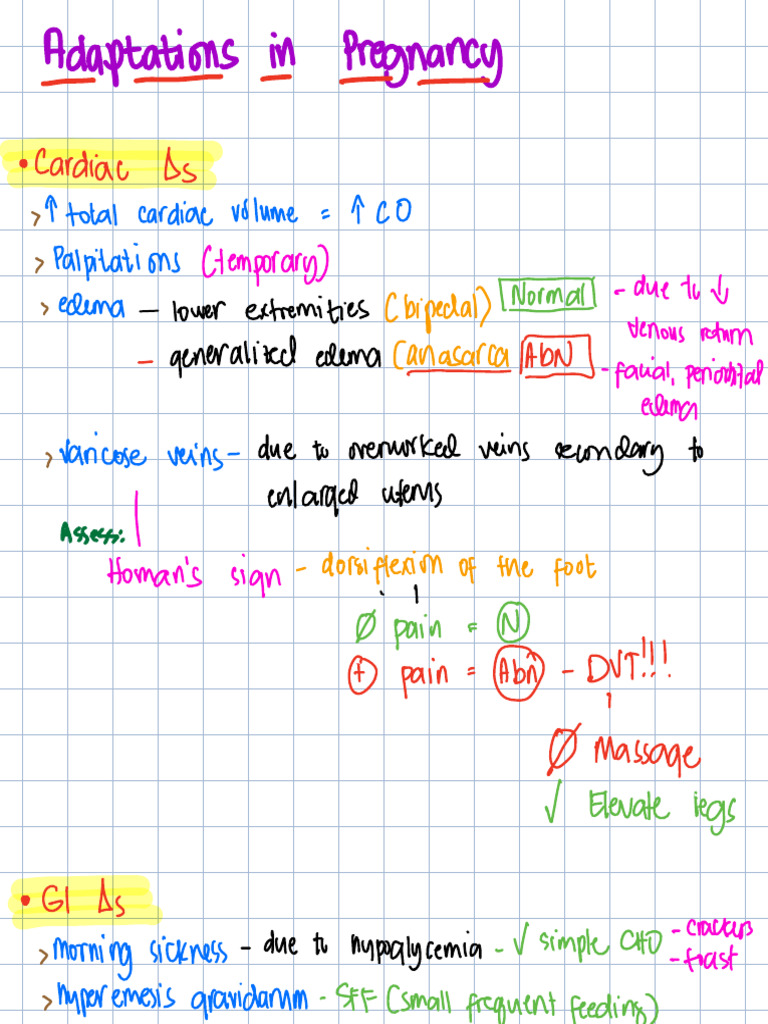 Adaptations in Pregnancy
• Cardiac Δs
> ↑ total cardiac volume = ↑ CO
> Palpitations (temporary)
> edema – lower extremities (bipedal) Normal - due to ↓ venous return
– generalized edema (anasarca AbN - facial, periorbital edema
> varicose veins – due to overworked veins secondary to
enlarged uterus
Assess:
Homan's sign – dorsiflexion of the foot
Ø pain = N
+ pain = Abn – DVT!!!
Ø Massage
√ Elevate legs
• GI Δs
> morning sickness – due to hypoglycemia – √ simple CHO - crackers
- toast
> hyperemesis gravidarum – SFF (small frequent feeding)